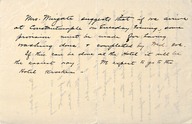 Mrs. Wingate suggests that if we arrive
at Constantinople on Tuesday evening, some
provision must be made for having
washing done & completed by Wed. eve.
If this is done at the hotel it will be
the easiest way. We expect to go to the
Hotel